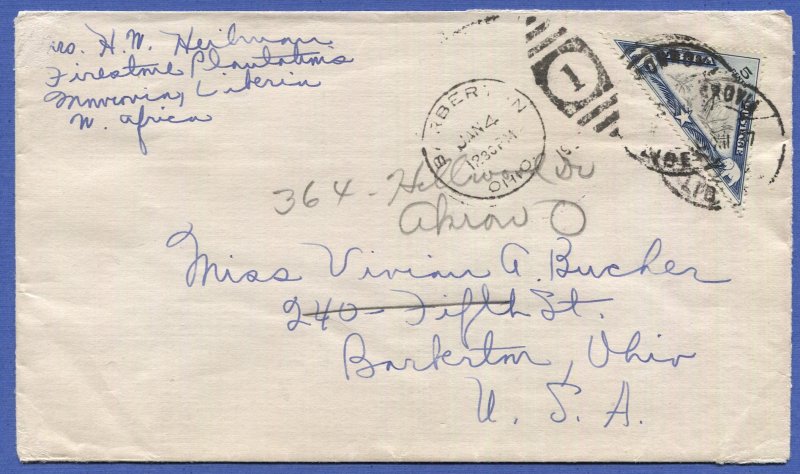 Mrs. H.W. Heilman
Firestone Plantations
Monrovia, Liberia
W. Africa
BARBERTON
JAN 4
12 30 PM
OHIO
1
5
364 - Hillwood Dr
Akron O
Miss Vivian A. Bucher
240 - Fifth St.
Barberton, Ohio
U. S. A.